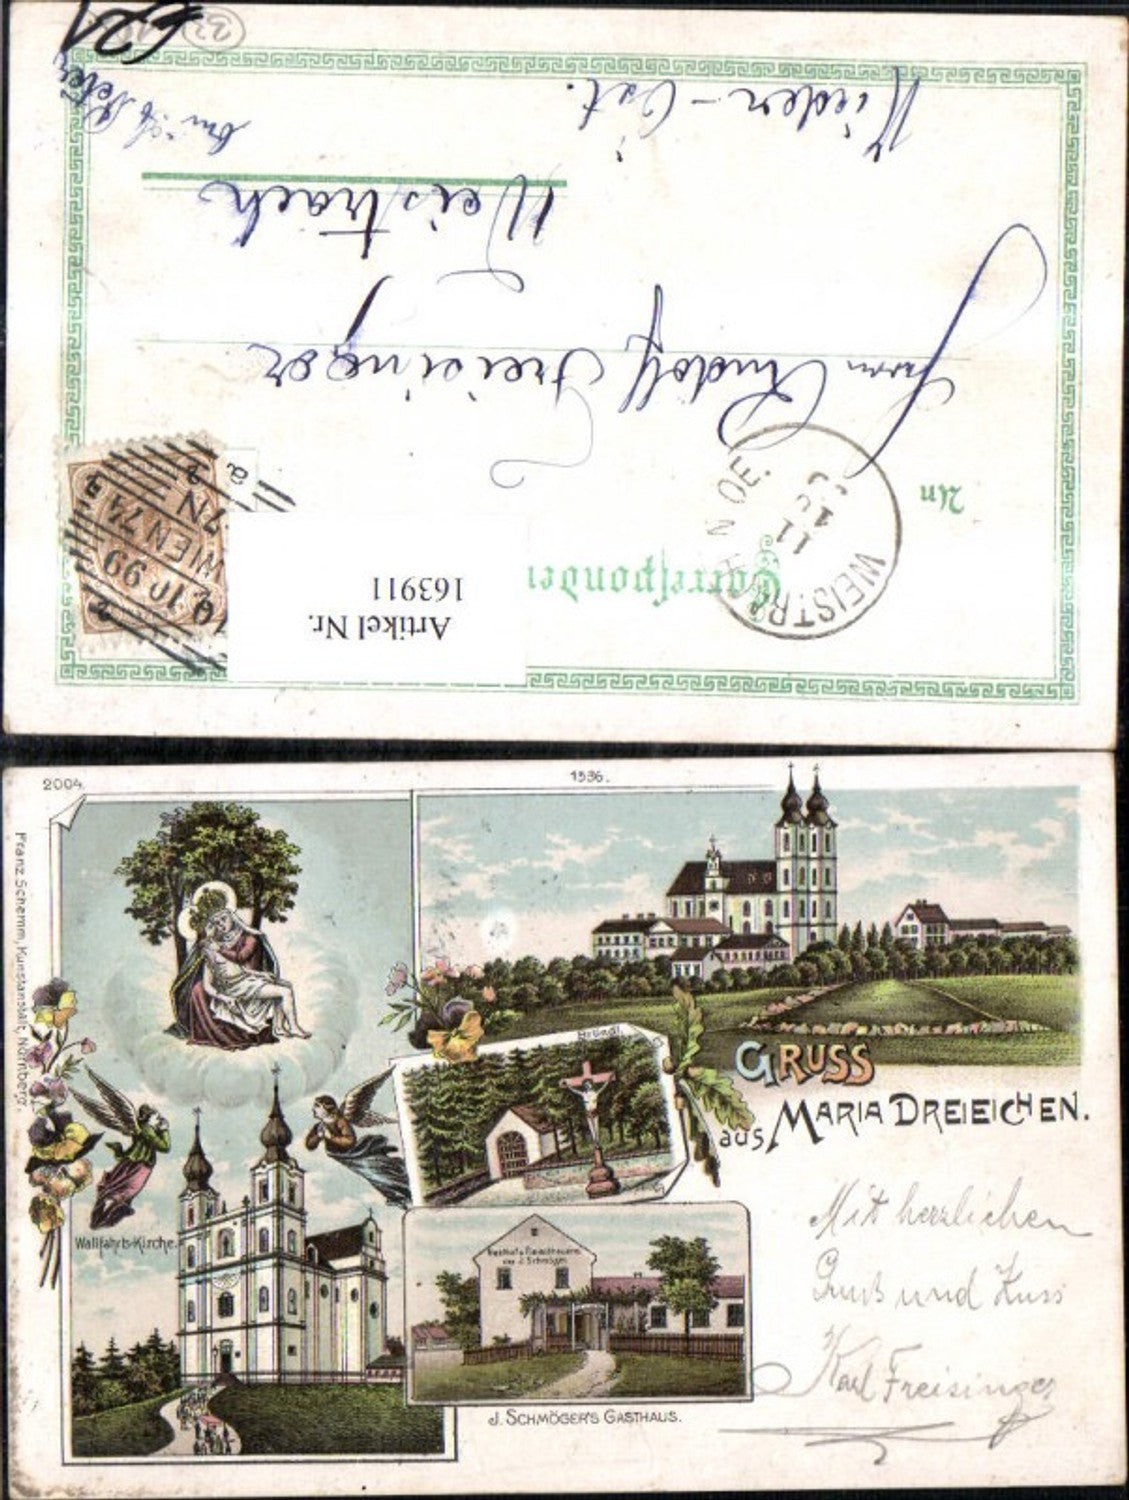 621
Correspondenz
An
Herrn Rudolf Freisinger
Weistrach
Nieder-Öst.
St. Peter
Artikel Nr.
163911
WIEN 74
10 99
7N
WEISTRACH N OE.
11
10
99
2004.
1536.
Franz Schemm, Kunstanstalt, Nürnberg.
Bründl.
GRUSS
aus MARIA DREIEICHEN.
Wallfahrts-Kirche.
J. Schmöger
J. SCHMÖGER'S GASTHAUS.
Mit herzlichen
Gruß und Kuss
Karl Freisinger